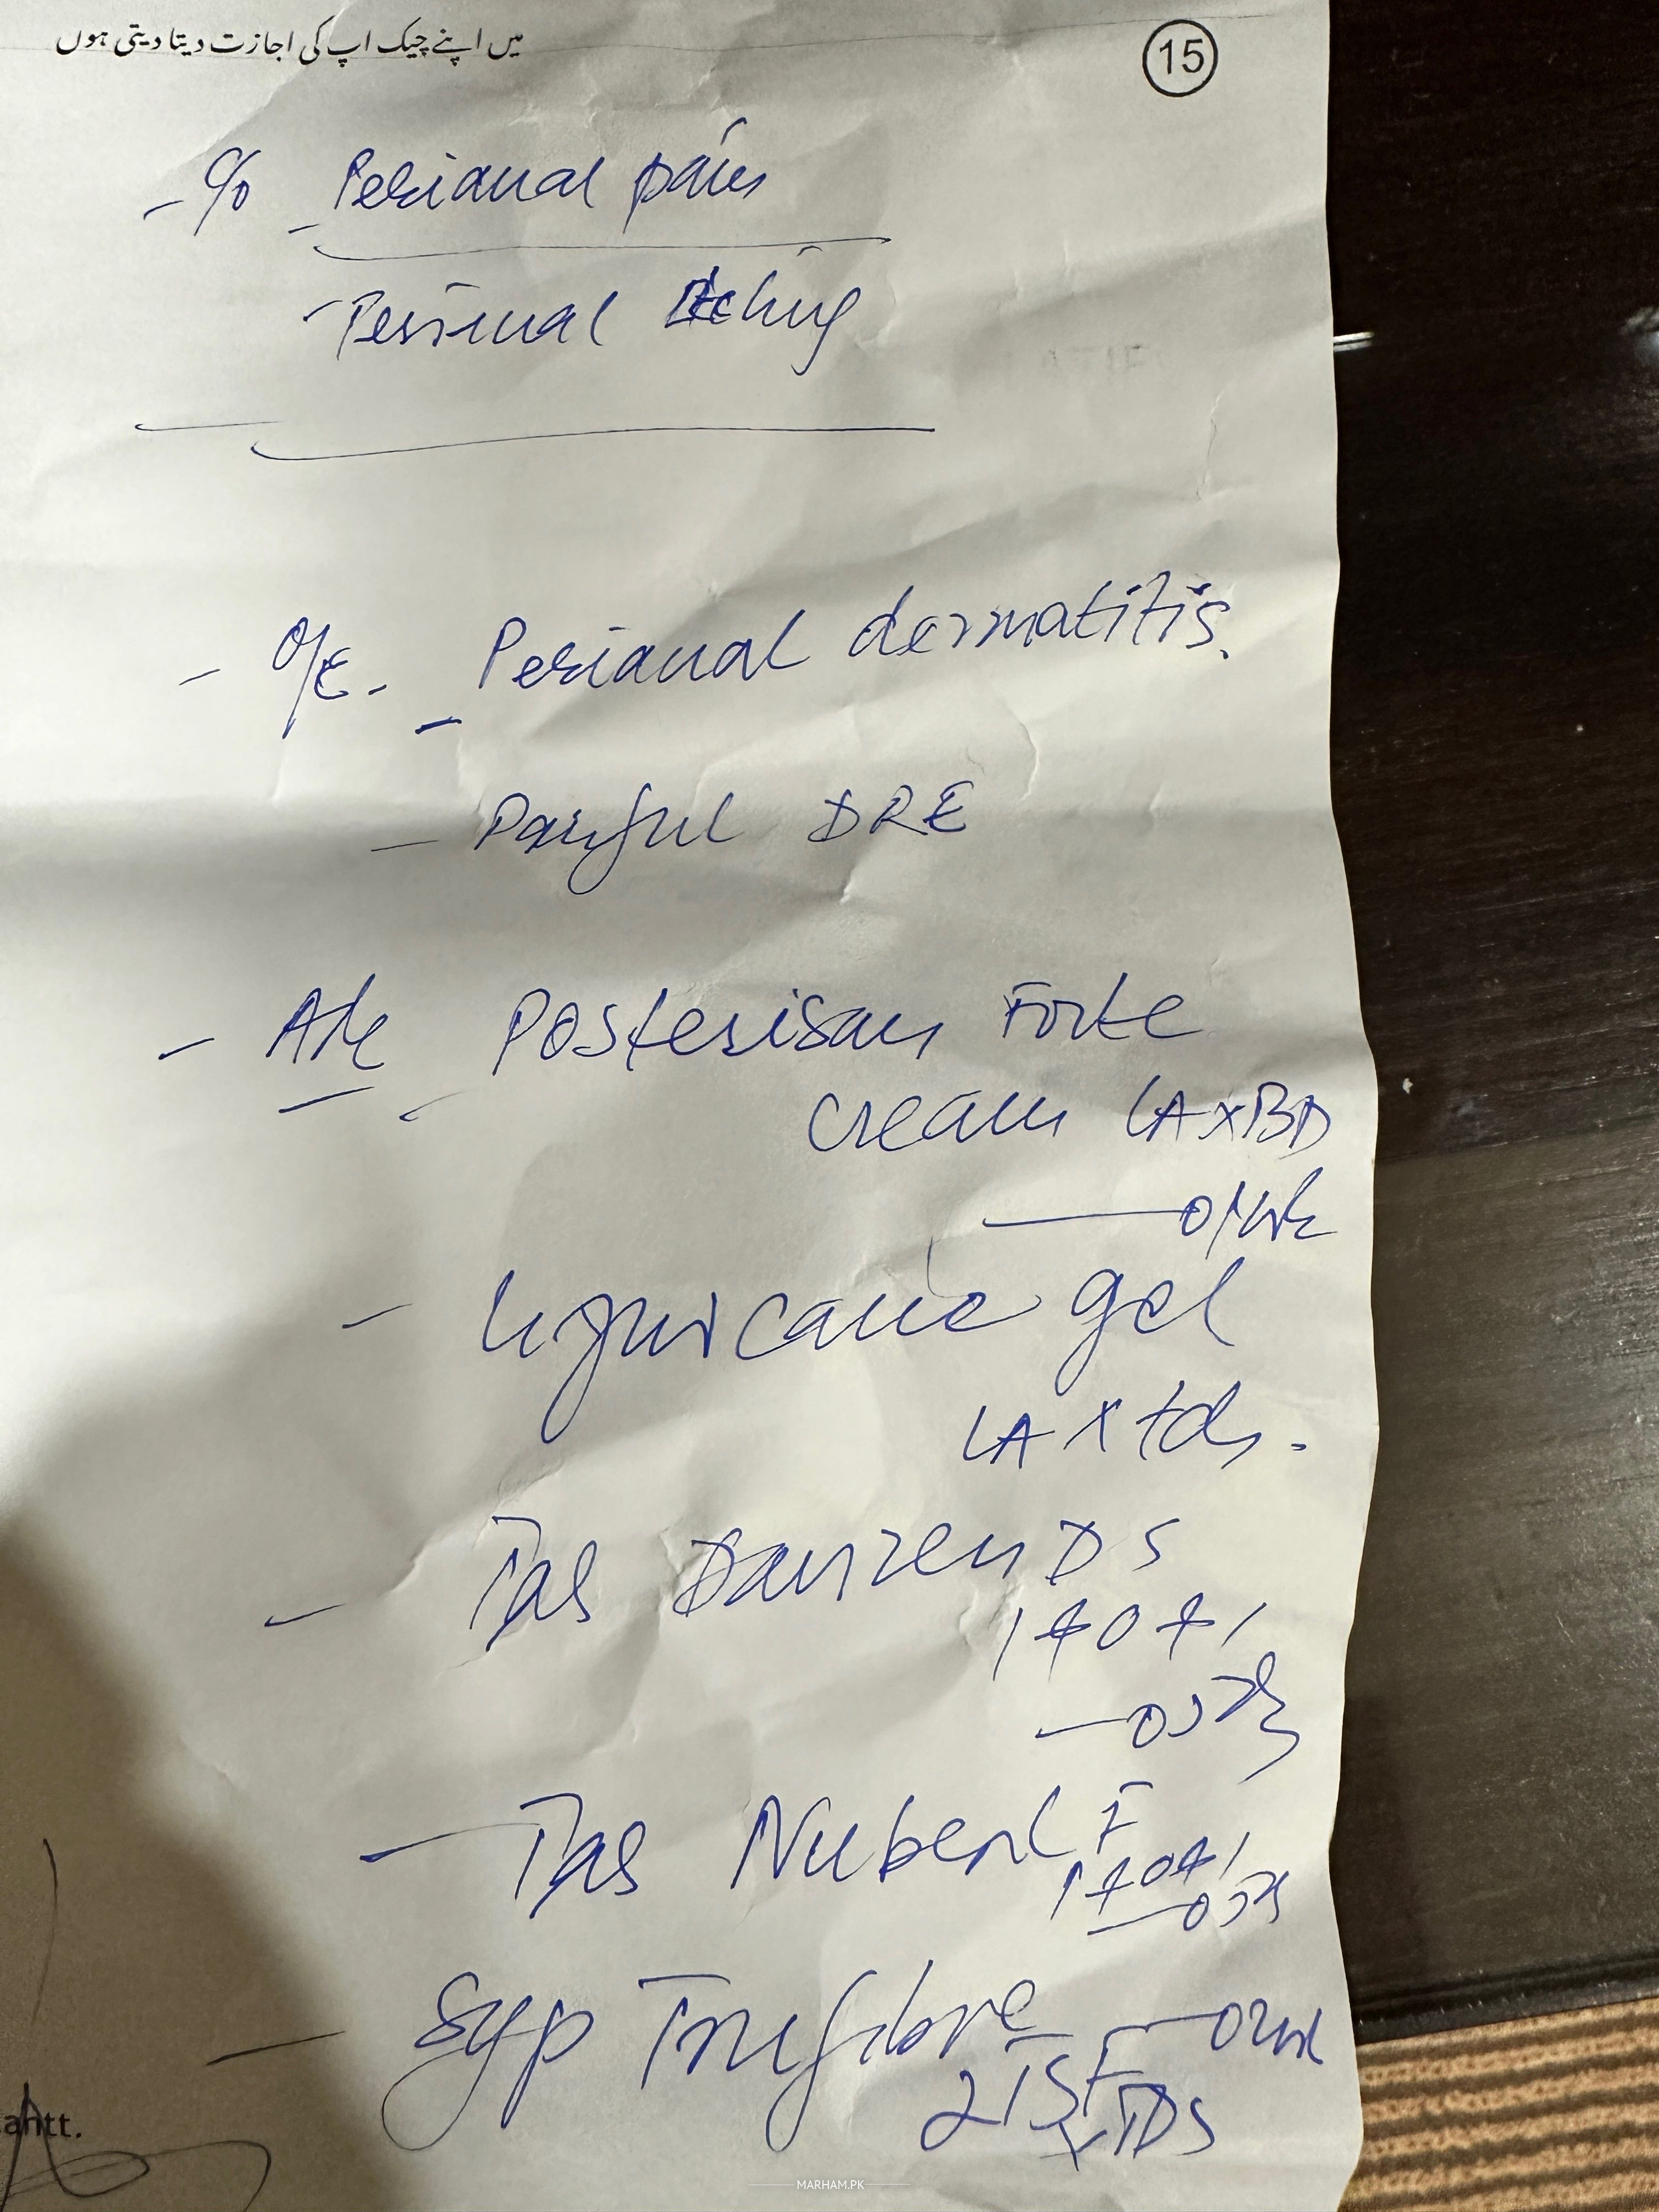 میں اپنے چیک اپ کی اجازت دیتا دیتی ہوں
15
- C/o - Perianal pain
- Perianal Itching
- O/E. - Perianal dermatitis.
- Painful DRE
- Adv - Posterisan Forte
cream LA x BD
— 01 wk
- lignocaine gel
LA x tds.
- Tab Danzen DS
1+0+1
— 05 days
- Tab Nuberol F
1+0+1
— 05 days
- Syp Trufibre — 02 wk
2 TSF
x TDS
antt.
MARHAM.PK